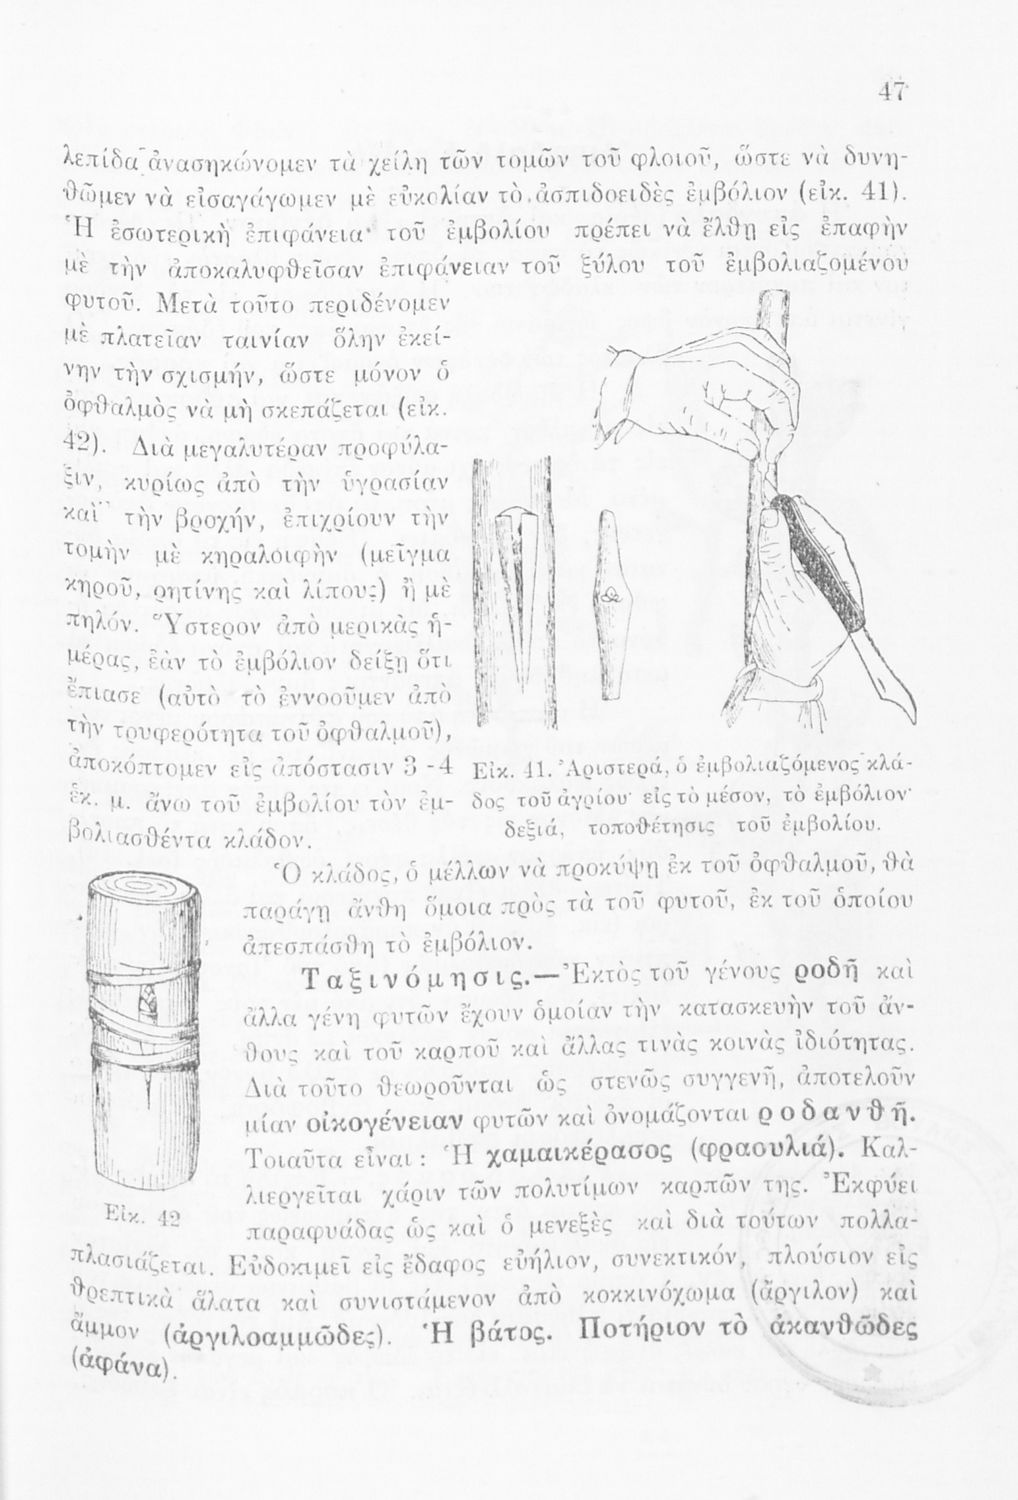 47
λεπίδα ἀνασηκώνομεν τὰ χείλη τῶν τομῶν τοῦ φλοιοῦ, ὥστε νὰ δυνη-
θῶμεν νὰ εἰσαγάγωμεν μὲ εὐκολίαν τὸ ἀσπιδοειδὲς ἐμβόλιον (εἰκ. 41).
Ἡ ἐσωτερικὴ ἐπιφάνεια τοῦ ἐμβολίου πρέπει νὰ ἔλθῃ εἰς ἐπαφὴν
μὲ τὴν ἀποκαλυφθεῖσαν ἐπιφάνειαν τοῦ ξύλου τοῦ ἐμβολιαζομένου
φυτοῦ. Μετὰ τοῦτο περιδένομεν
μὲ πλατεῖαν ταινίαν ὅλην ἐκεί-
νην τὴν σχισμήν, ὥστε μόνον ὁ
ὀφθαλμὸς νὰ μὴ σκεπάζεται (εἰκ.
42). Διὰ μεγαλυτέραν προφύλα-
ξιν, κυρίως ἀπὸ τὴν ὑγρασίαν
καὶ τὴν βροχήν, ἐπιχρίουν τὴν
τομὴν μὲ κηραλοιφὴν (μεῖγμα
κηροῦ, ρητίνης καὶ λίπους) ἢ μὲ
πηλόν. Ὕστερον ἀπὸ μερικὰς ἡ-
μέρας, ἐὰν τὸ ἐμβόλιον δείξῃ ὅτι
ἔπιασε (αὐτὸ τὸ ἐννοοῦμεν ἀπὸ
τὴν τρυφερότητα τοῦ ὀφθαλμοῦ),
ἀποκόπτομεν εἰς ἀπόστασιν 3 - 4
ἑκ. μ. ἄνω τοῦ ἐμβολίου τὸν ἐμ-
βολιασθέντα κλάδον.
Εἰκ. 41. Ἀριστερά, ὁ ἐμβολιαζόμενος κλά-
δος τοῦ ἀγρίου· εἰς τὸ μέσον, τὸ ἐμβόλιον·
δεξιά, τοποθέτησις τοῦ ἐμβολίου.
Ὁ κλάδος, ὁ μέλλων νὰ προκύψῃ ἐκ τοῦ ὀφθαλμοῦ, θὰ
παράγῃ ἄνθη ὅμοια πρὸς τὰ τοῦ φυτοῦ, ἐκ τοῦ ὁποίου
ἀπεσπάσθη τὸ ἐμβόλιον.
Ταξινόμησις.— Ἐκτὸς τοῦ γένους ροδῆ καὶ
ἄλλα γένη φυτῶν ἔχουν ὁμοίαν τὴν κατασκευὴν τοῦ ἄν-
θους καὶ τοῦ καρποῦ καὶ ἄλλας τινὰς κοινὰς ἰδιότητας.
Διὰ τοῦτο θεωροῦνται ὡς στενῶς συγγενῆ, ἀποτελοῦν
μίαν οἰκογένειαν φυτῶν καὶ ὀνομάζονται ροδανθῆ.
Τοιαῦτα εἶναι : Ἡ χαμαικέρασος (φραουλιά). Καλ-
λιεργεῖται χάριν τῶν πολυτίμων καρπῶν της. Ἐκφύει
παραφυάδας ὡς καὶ ὁ μενεξὲς καὶ διὰ τούτων πολλα-
Εἰκ. 42
πλασιάζεται. Εὐδοκιμεῖ εἰς ἔδαφος εὐήλιον, συνεκτικόν, πλούσιον εἰς
θρεπτικὰ ἅλατα καὶ συνιστάμενον ἀπὸ κοκκινόχωμα (ἄργιλον) καὶ
ἄμμον (ἀργιλοαμμῶδες). Ἡ βάτος. Ποτήριον τὸ ἀκανθῶδες
(ἀφάνα).